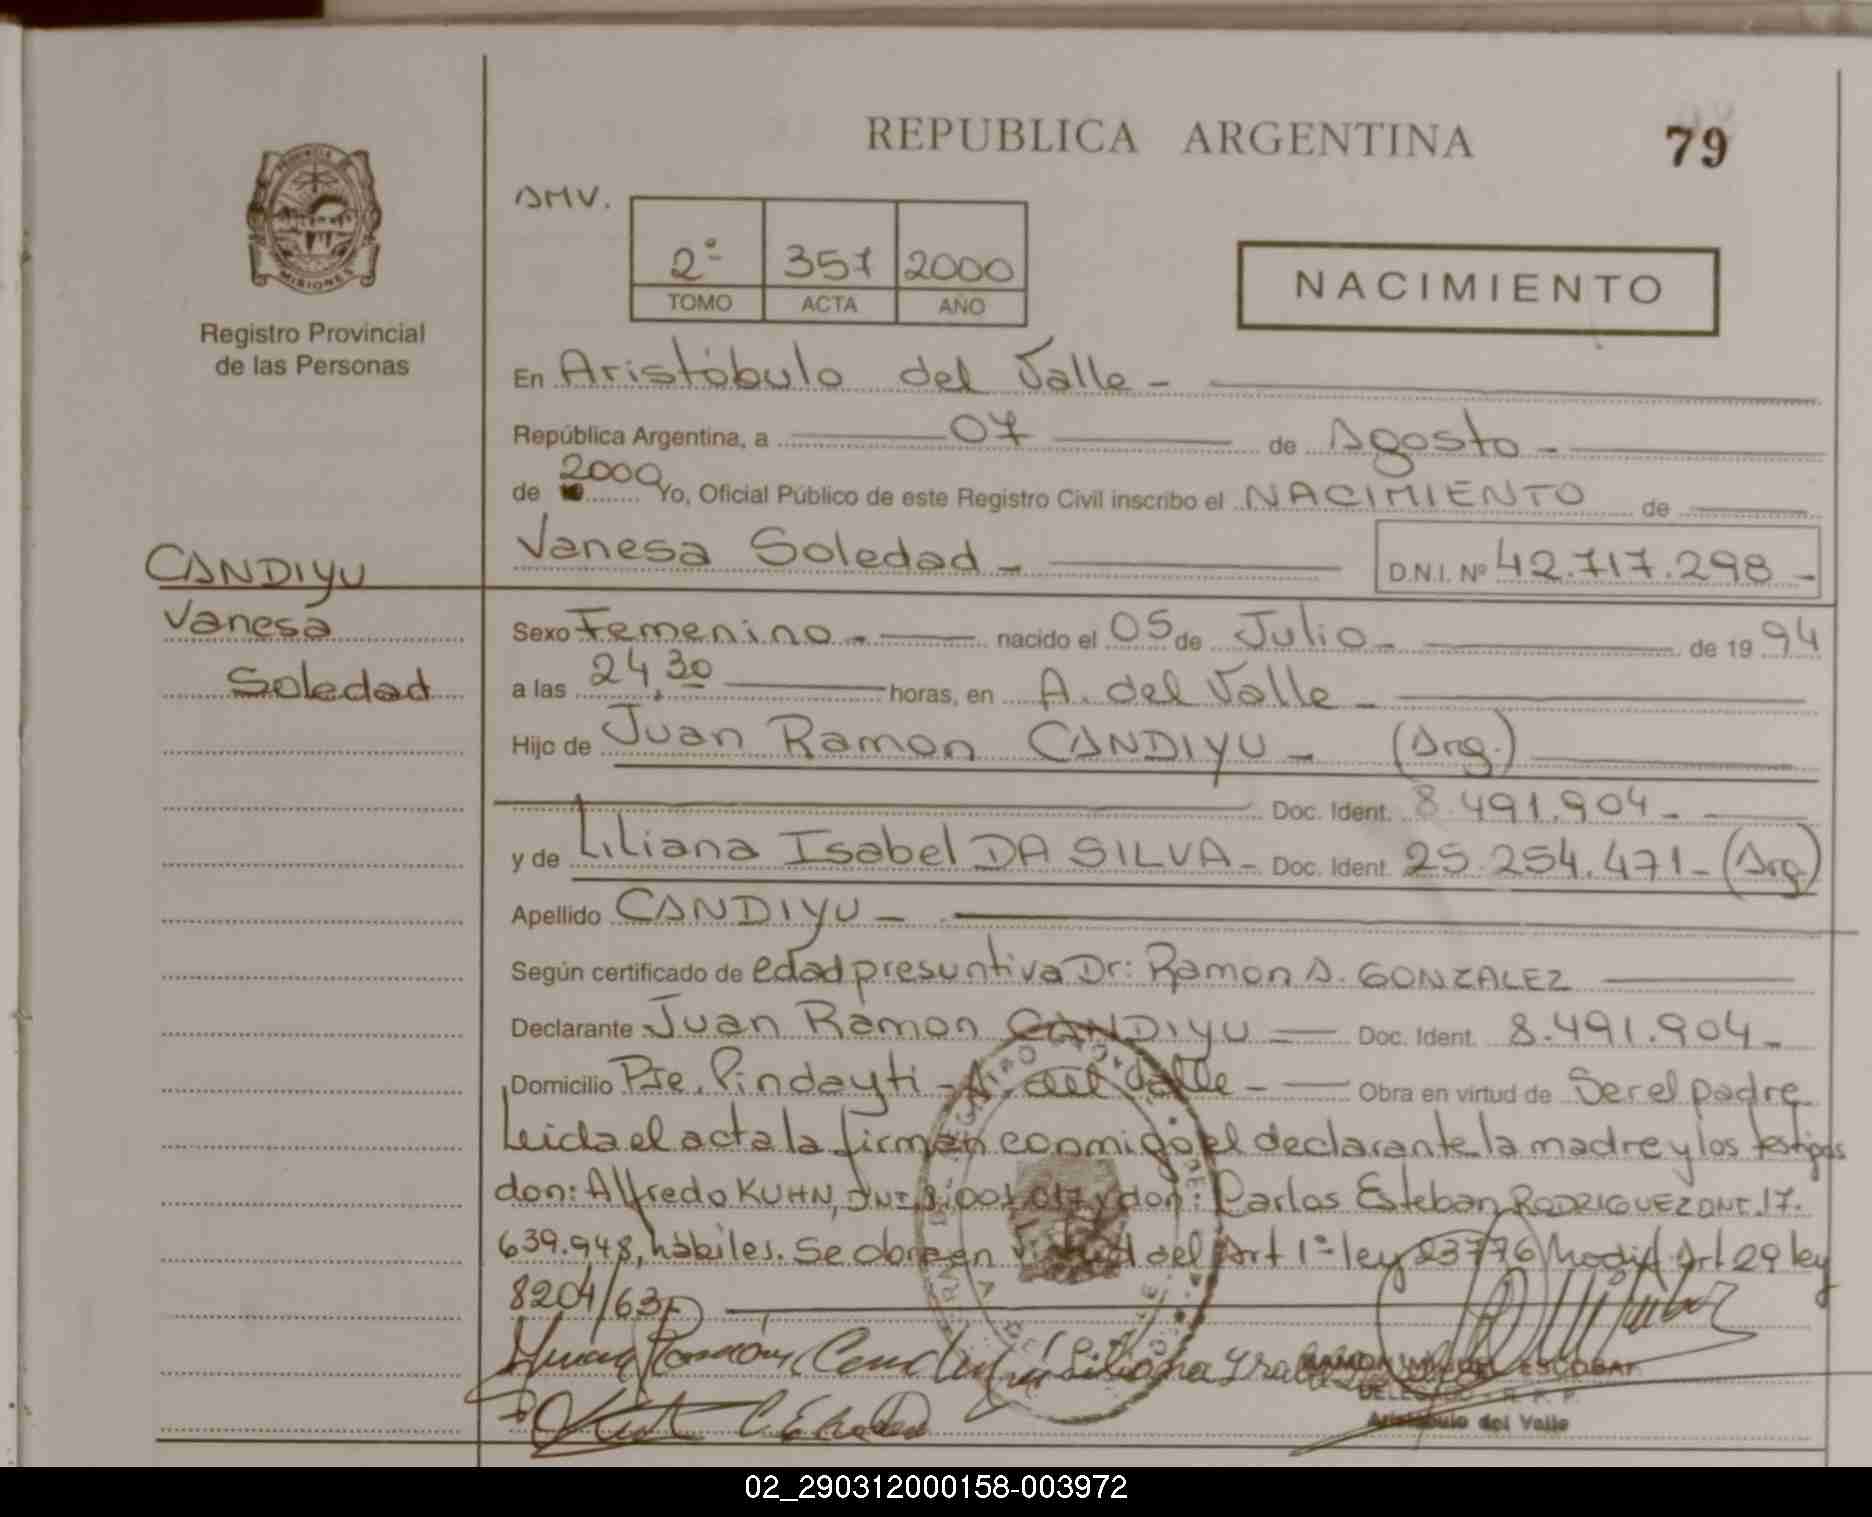 REPUBLICA ARGENTINA
79
PROVINCIA
MISIONES
Registro Provincial
de las Personas
AMV.
2º 357 2000
TOMO ACTA AÑO
NACIMIENTO
En Aristóbulo del Valle -
República Argentina, a 07 de Agosto -
de 2000 Yo, Oficial Público de este Registro Civil inscribo el NACIMIENTO de
Vanesa Soledad - D.N.I. Nº 42.717.298 -
CANDIYU
Vanesa
Soledad
Sexo Femenino - nacido el 05 de Julio - de 19 94
a las 24,30 horas, en A. del Valle -
Hijo de Juan Ramon CANDIYU - (Arg.)
Doc. Ident. 8.491.904 -
y de Liliana Isabel DA SILVA - Doc. Ident. 25.254.471 - (Arg)
Apellido CANDIYU -
Según certificado de edad presuntiva Dr: Ramon A. GONZALEZ
Declarante Juan Ramon CANDIYU Doc. Ident. 8.491.904 -
Domicilio Pje. Pindayti - A. del Valle - Obra en virtud de Ser el padre
Leida el acta la firman conmigo el declarante la madre y los testigos
don: Alfredo KUHN, DNI y don: Carlos Esteban RODRIGUEZ DNI. 17.
639.948, hábiles. Se obra en virtud del Art 1º ley 23776 Modif Art 29 ley
8204/63
Juan Ramón Liliana
RAMON MIGUEL ESCOBAR
DELEGADO - R. P. P.
Aristóbulo del Valle
02_290312000158-003972